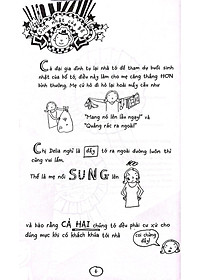 Cả đại gia đình tụ lại nhà tớ để tham dự buổi sinh
nhật của bố tớ, điều này làm cho mẹ căng thẳng HƠN
bình thường. Mẹ cứ hô đi hô lại hoài mấy câu như
"Mang nó lên lầu ngay" và
"Quẳng rác ra ngoài!"
Chị Delia nghĩ là đẩy tớ ra ngoài đường luôn thì
cũng vui lắm.
Thế là mẹ nổi SUNG lên
và bảo rằng CẢ HAI chúng tớ đều phải cư xử cho
đúng mực khi có khách khứa tới nhà
coi chừng
đấy!
6